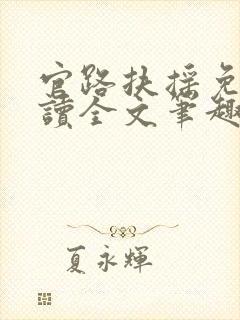 官路扶搖免
讀全文筆趣
夏永輝